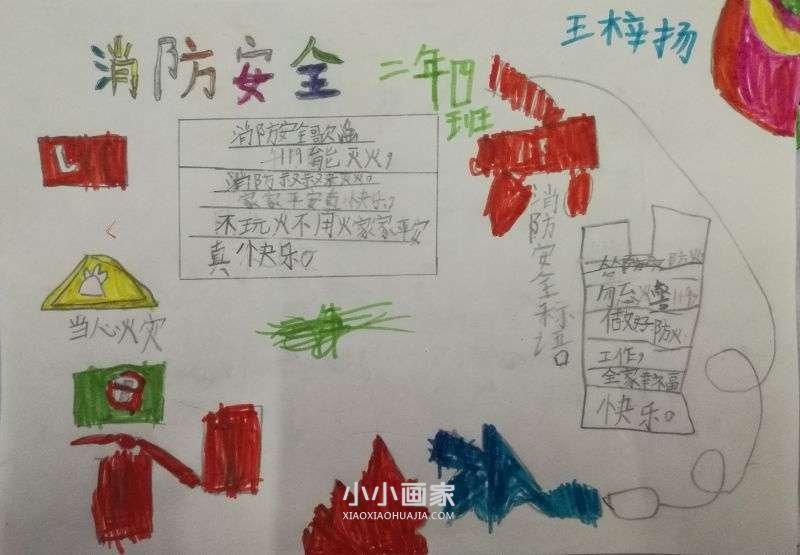 消防安全
二年四班
王梓扬
消防安全歌谣
119能灭火，
消防叔叔来灭火。
家家平安真快乐。
不玩火不用火家家平安
真快乐。
当心火灾
消防安全标语
防火
119
做好防火
工作，
全家幸福
快乐。
小小画家
XIAOXIAOHUAJIA.COM